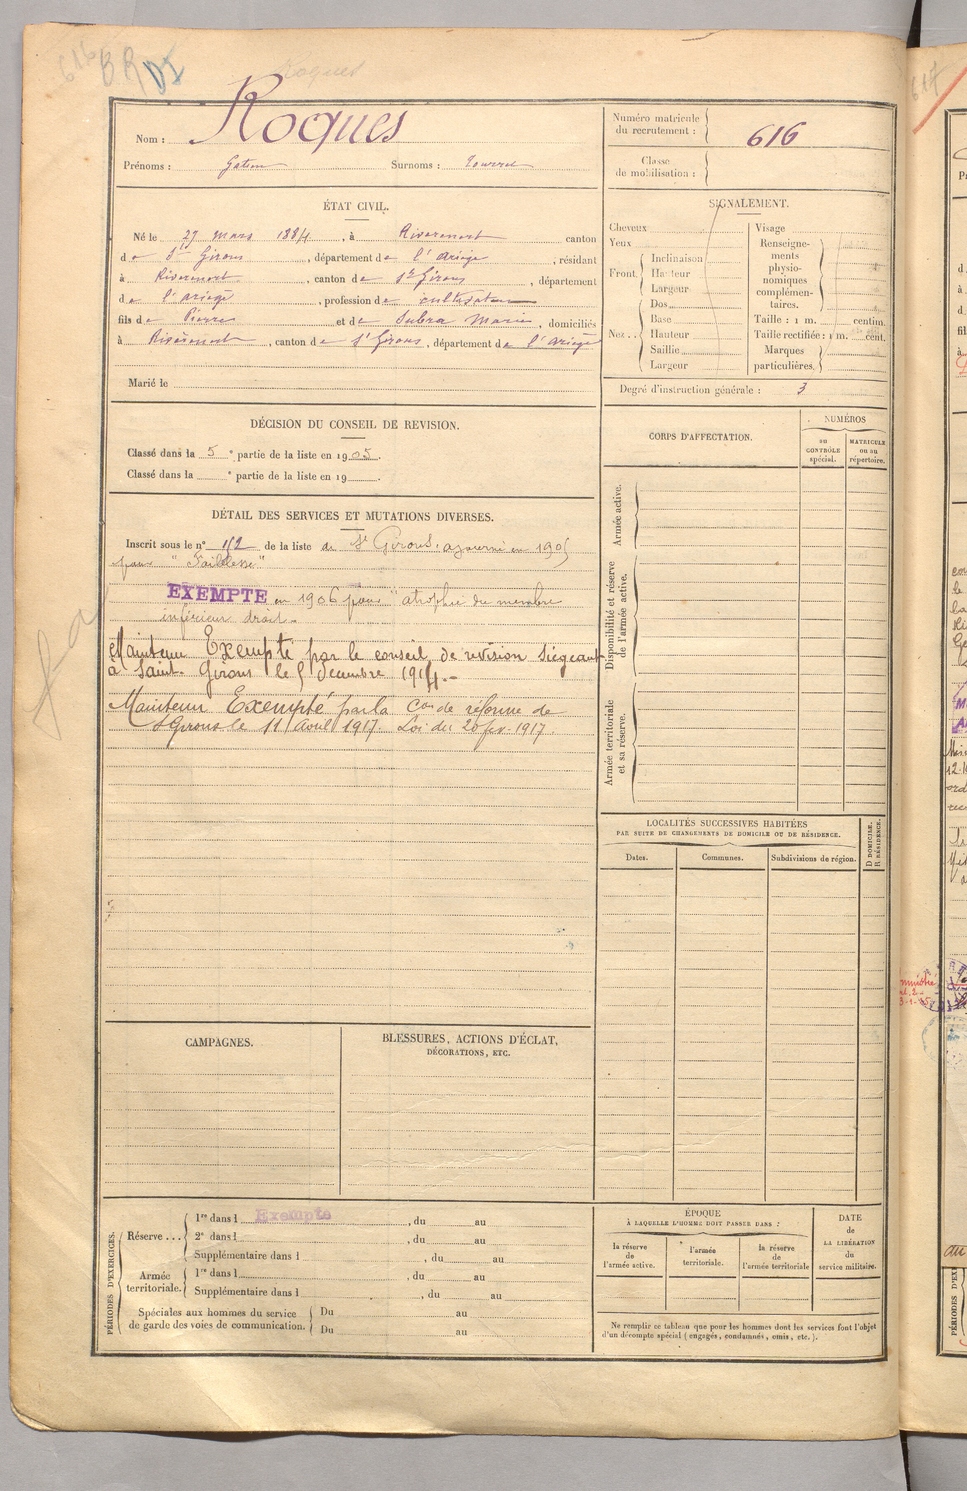 616 BR
Roques
Nom : Roques
Prénoms : Gatien Surnoms :
Numéro matricule
du recrutement : 616
Classe
de mobilisation :
ÉTAT CIVIL.
Né le 27 mars 1884, à Riverenert canton
de St Girons, département de l'Ariège, résidant
à Riverenert, canton de St Girons, département
de l'ariège, profession de cultivateur
fils de Pierre et de Subra Marie, domiciliés
à Rivèrenert, canton de St Girons, département de l'Ariege
Marié le
SIGNALEMENT.
Cheveux
Yeux
Front. Inclinaison
Hauteur
Largeur
Nez . . Dos
Base
Hauteur
Saillie
Largeur
Visage
Renseigne-
ments
physio-
nomiques
complémen-
taires.
Taille : 1 m. centim.
Taille rectifiée : 1 m. cent.
Marques
particulières.
Degré d'instruction générale : 3
DÉCISION DU CONSEIL DE REVISION.
Classé dans la 5e partie de la liste en 1905.
Classé dans la e partie de la liste en 19 .
DÉTAIL DES SERVICES ET MUTATIONS DIVERSES.
Inscrit sous le n° 112 de la liste de St Girons, ajourné en 1905
pour "Faiblesse"
EXEMPTÉ en 1906 pour "atrophie du membre
inférieur droit.
Maintenu Exempté par le conseil de revision siégeant
à Saint-Girons le 5 décembre 1914.-
Maintenu Exempté par la Con de réforme de
St Girons le 11 Avril 1917. Loi du 20 fev. 1917.
CORPS D'AFFECTATION.
NUMÉROS
au
CONTRÔLE
spécial.
MATRICULE
ou au
répertoire.
Armée active.
Disponibilité et réserve
de l'armée active.
Armée territoriale
et sa réserve.
LOCALITÉS SUCCESSIVES HABITÉES
PAR SUITE DE CHANGEMENTS DE DOMICILE OU DE RÉSIDENCE.
Dates. Communes. Subdivisions de région.
D DOMICILE.
R RÉSIDENCE.
CAMPAGNES.
BLESSURES, ACTIONS D'ÉCLAT,
DÉCORATIONS, ETC.
PÉRIODES D'EXERCICES.
Réserve . . . 1re dans l Exempté, du au
2e dans l , du au
Supplémentaire dans l , du au
Armée
territoriale. 1re dans l , du au
Supplémentaire dans l , du au
Spéciales aux hommes du service
de garde des voies de communication. Du au
Du au
ÉPOQUE
À LAQUELLE L'HOMME DOIT PASSER DANS :
la réserve
de
l'armée active.
l'armée
territoriale.
la réserve
de
l'armée territoriale
DATE
de
LA LIBÉRATION
du
service militaire.
Ne remplir ce tableau que pour les hommes dont les services font l'objet
d'un décompte spécial (engagés, condamnés, omis, etc.).
617